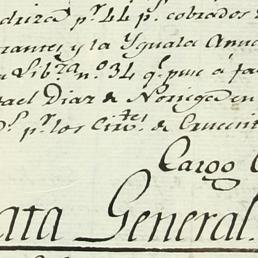 adriza pr. 44 ps. cobrados
rantes, y la Yguala Anua
Libza no. 34 qe. puse á fa
ael Diaz de Noriega en
pr. los Cinctes. de
Cargo
ata General.